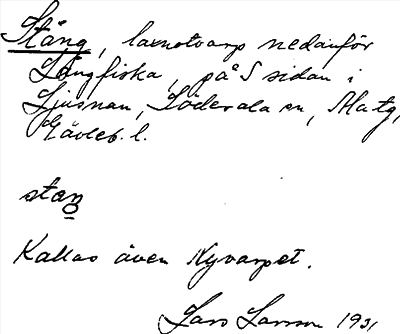 Stång, laxnotvarp nedanför
Långfiska, på S sidan i
Ljusnan, Söderala sn,
Gävleb. l.
staŋ
Kallas även Nyvarpet.
Lars Larsson 1931